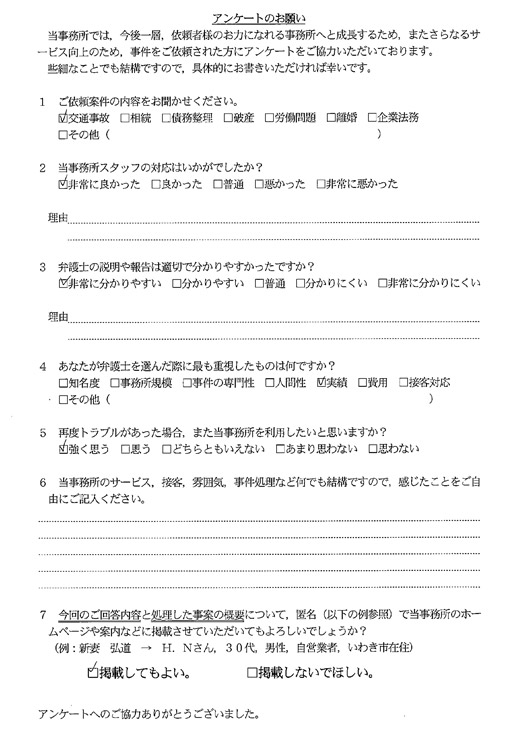 アンケートのお願い
当事務所では，今後一層，依頼者様のお力になれる事務所へと成長するため，またさらなるサ
ービス向上のため，事件をご依頼された方にアンケートをご協力いただいております。
些細なことでも結構ですので，具体的にお書きいただければ幸いです。
1 ご依頼案件の内容をお聞かせください。
☑交通事故 □相続 □債務整理 □破産 □労働問題 □離婚 □企業法務
□その他（ ）
2 当事務所スタッフの対応はいかがでしたか？
☑非常に良かった □良かった □普通 □悪かった □非常に悪かった
理由
3 弁護士の説明や報告は適切で分かりやすかったですか？
☑非常に分かりやすい □分かりやすい □普通 □分かりにくい □非常に分かりにくい
理由
4 あなたが弁護士を選んだ際に最も重視したものは何ですか？
□知名度 □事務所規模 □事件の専門性 □人間性 ☑実績 □費用 □接客対応
□その他（ ）
5 再度トラブルがあった場合，また当事務所を利用したいと思いますか？
☑強く思う □思う □どちらともいえない □あまり思わない □思わない
6 当事務所のサービス，接客，雰囲気，事件処理など何でも結構ですので，感じたことをご自
由にご記入ください。
7 今回のご回答内容と処理した事案の概要について，匿名（以下の例参照）で当事務所のホー
ムページや案内などに掲載させていただいてもよろしいでしょうか？
（例：新妻 弘道 → H．Nさん，３０代，男性，自営業者，いわき市在住）
☑掲載してもよい。 □掲載しないでほしい。
アンケートへのご協力ありがとうございました。